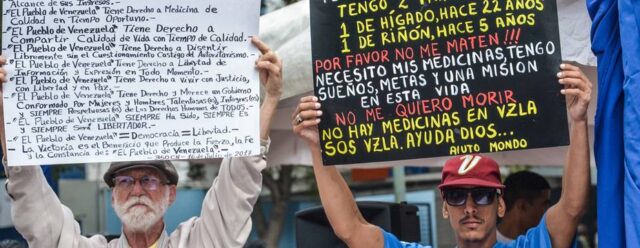 Alcance de sus Ingresos.
"El Pueblo de Venezuela" Tiene Derecho a Medicina de
Calidad en Tiempo Oportuno.
"El Pueblo de Venezuela" Tiene Derecho a
Compartir Calidad de Vida con Tiempo de Calidad.
"El Pueblo de Venezuela" Tiene Derecho a Disentir
Libremente sin el Cuestionamiento Castigo del Autoritarismo.
"El Pueblo de Venezuela" Tiene Derecho a Libertad de
Información y Expresión en Todo Momento.
"El Pueblo de Venezuela" Tiene Derecho a Vivir con Justicia,
con Libertad y en Paz.
"El Pueblo de Venezuela" Tiene Derecho y Merece un Gobierno
Conformado por Mujeres y Hombres Talentosos(as), Íntegros(as)
y SIEMPRE Respetuosos(as) de los Derechos Humanos de TODOS.
"El Pueblo de Venezuela" SIEMPRE Ha Sido, SIEMPRE Es
y SIEMPRE Será LIBERTADOR.
"El Pueblo de Venezuela" = Democracia = Libertad.
La Victoria es el Beneficio que Produce la Fuerza, la Fe
y la Constancia de "El Pueblo de Venezuela"
TENGO, 2
1 DE HÍGADO, HACE 22 AÑOS
1 DE RIÑON, HACE 5 AÑOS
POR FAVOR NO ME MATEN!!!
NECESITO MIS MEDICINAS,TENGO
SUEÑOS, METAS Y UNA MISION
EN ESTA VIDA
NO ME QUIERO MORIR
NO HAY MEDICINAS EN VZLA
SOS VZLA. AYUDA DIOS...
AUTO MUNDO